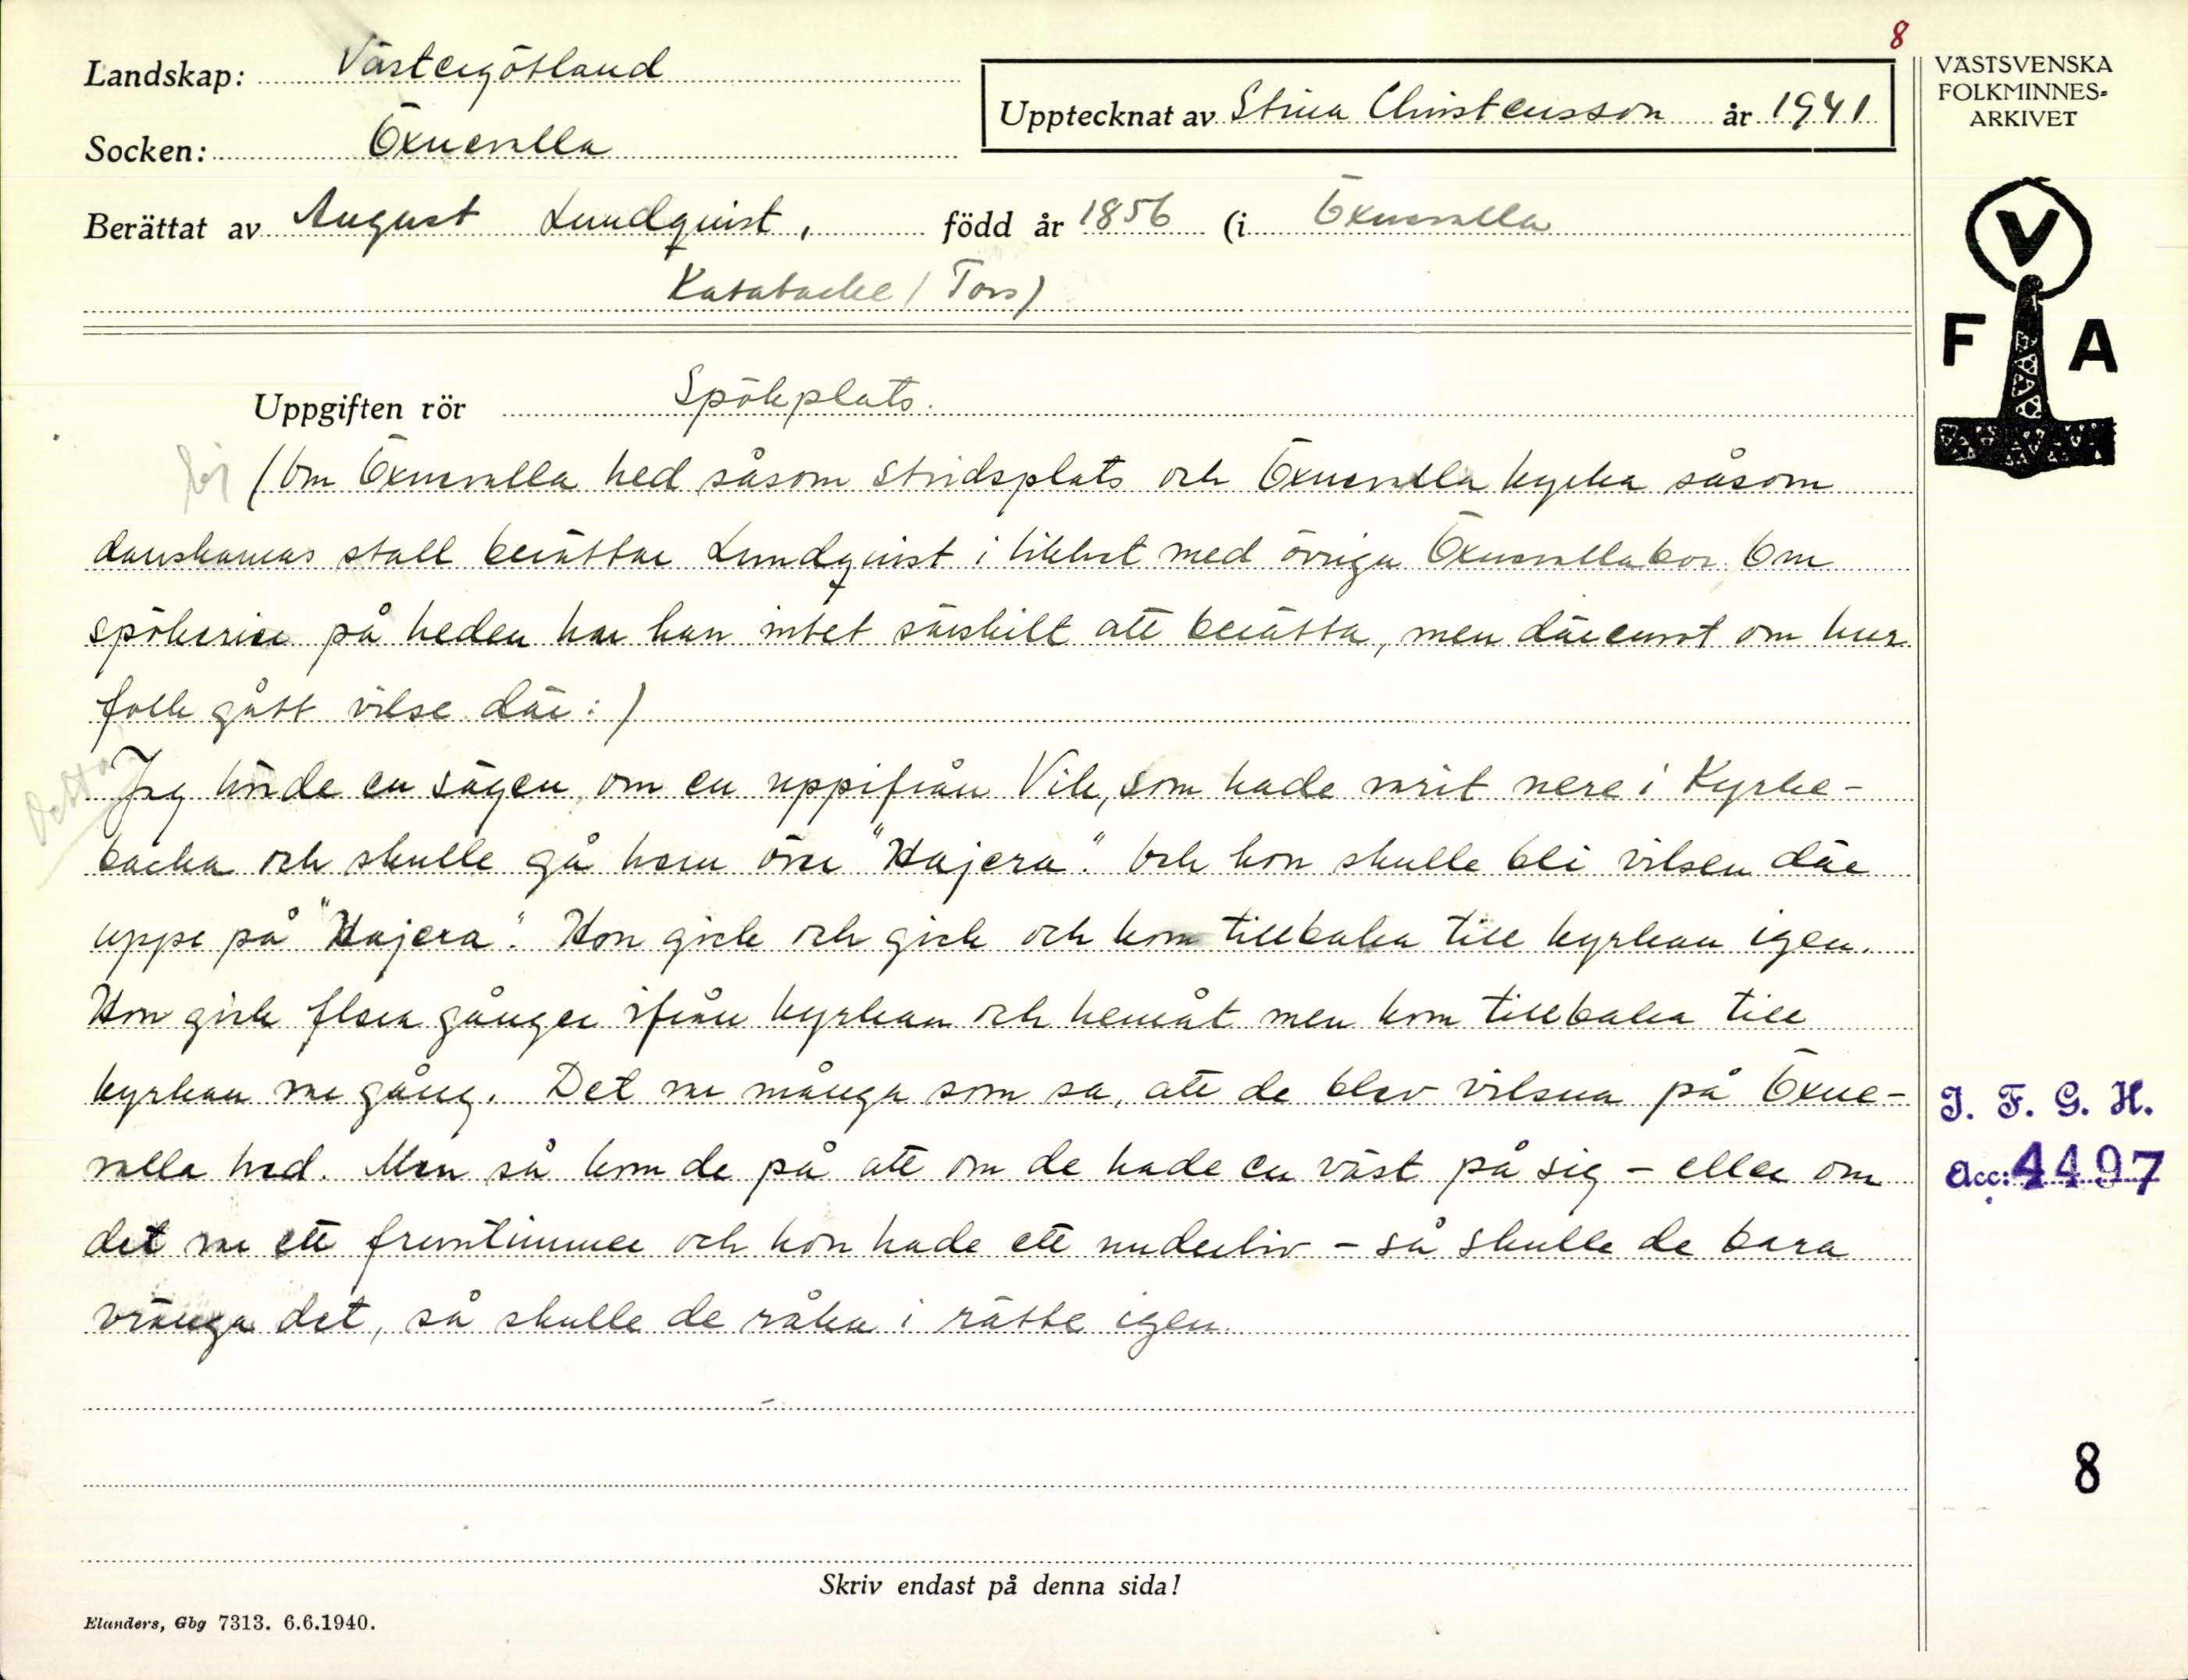 8
Landskap: Västergötland
Socken: Öxnevalla
Upptecknat av Stina Christensson år 1941
VÄSTSVENSKA
FOLKMINNES-
ARKIVET
Berättat av August Lundqvist, född år 1856 (i Öxnevalla
Katabacke (Tors)
V
F A
Uppgiften rör Spökplats.
Ej (Om Öxnevalla hed såsom stridsplats och Öxnevalla kyrka såsom
danskarnas stall berättar Lundqvist i likhet med övriga Öxnevallabor. Om
spökerier på heden har han intet särskilt att berätta, men däremot om hur
folk gått vilse där:)
Detta
Jag hörde en sägen, om en uppifrån Vik, som hade varit nere i Kyrke-
backa och skulle gå hem över "Hajera". Och hon skulle bli vilsen där
uppe på "Hajera". Hon gick och gick och kom tillbaka till kyrkan igen.
Hon gick flera gånger ifrån kyrkan och hemåt men kom tillbaka till
kyrkan var gång. Det var många som sa, att de blev vilsna på Öxne-
valla hed. Men så kom de på att om de hade en väst på sig – eller om
det var ett fruntimmer och hon hade ett underliv – så skulle de bara
vränga det, så skulle de råka i rätte igen.
I. F. G. H.
Acc: 4497
8
Skriv endast på denna sida!
Elanders, Gbg 7313. 6.6.1940.